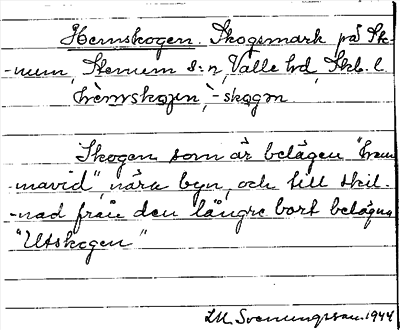 Hemskogen. Skogsmark på Ste-
-num, Stenum s:n, Valle hd, Skb. l.
hèmskoʒen, -skogən

Skogen som är belägen "hem
-mavid", nära byn, och till skil-
-nad från den längre bort belägna
"Utskogen"
LM. Svenungsson. 1944